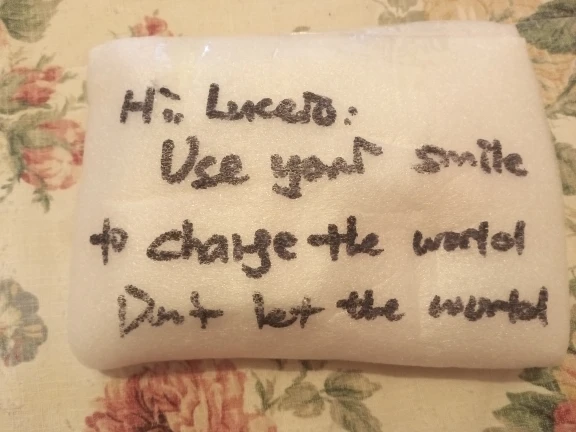 Hi: Lucero:
Use your smile
to change the world
Don't let the world